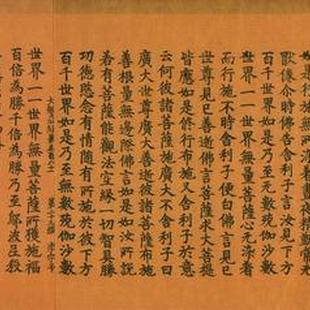 獸倦尒時佛告舍利子言汝見下方
百千世界如是乃至無數殑伽沙數
世界一一世界無量菩薩心无染著
而行施不時舍利子便白佛言見
世尊見已善逝佛言菩薩求大菩提
皆應如是於行布施又舍利子於意
云何彼諸菩薩施廣大不舍利子曰
廣大世尊廣大善逝彼諸菩薩布施
善根量無邊際佛言如是如汝所說
若有菩薩能觀法空緣一切智具勝
功德愍念有情隨有所施於彼下方
百千世界如是乃至無數殑伽沙數
世界一一世界無量菩薩所獲施福
百倍為勝千倍為勝乃至鄔波尼殺